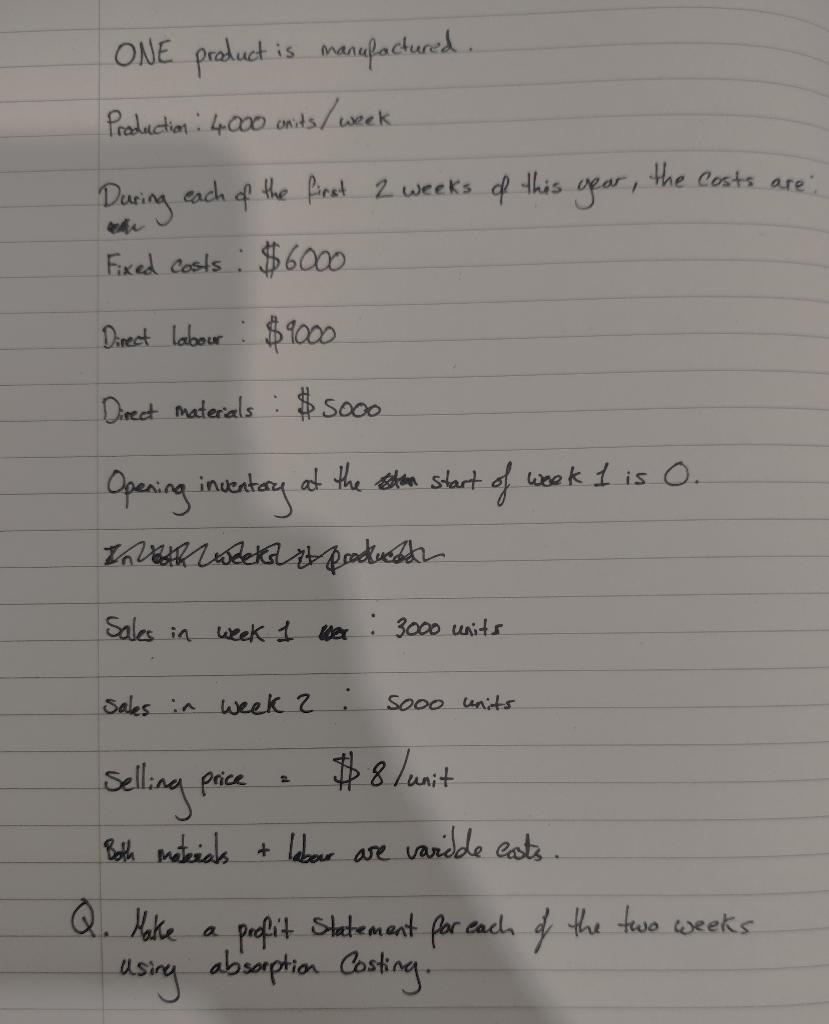 ONE product is manufactured.
Production: 4000 units/week
During each of the first 2 weeks of this year, the costs are:
Fixed costs: $6000
Direct labour: $9000
Direct materials: $5000
Opening inventory at the start of week 1 is 0.
Sales in week 1: 3000 units
Sales in week 2: 5000 units
Selling price = $8/unit
Both materials + labour are varidde costs.
Q. Make a profit Statement for each of the two weeks
using absorption Costing.